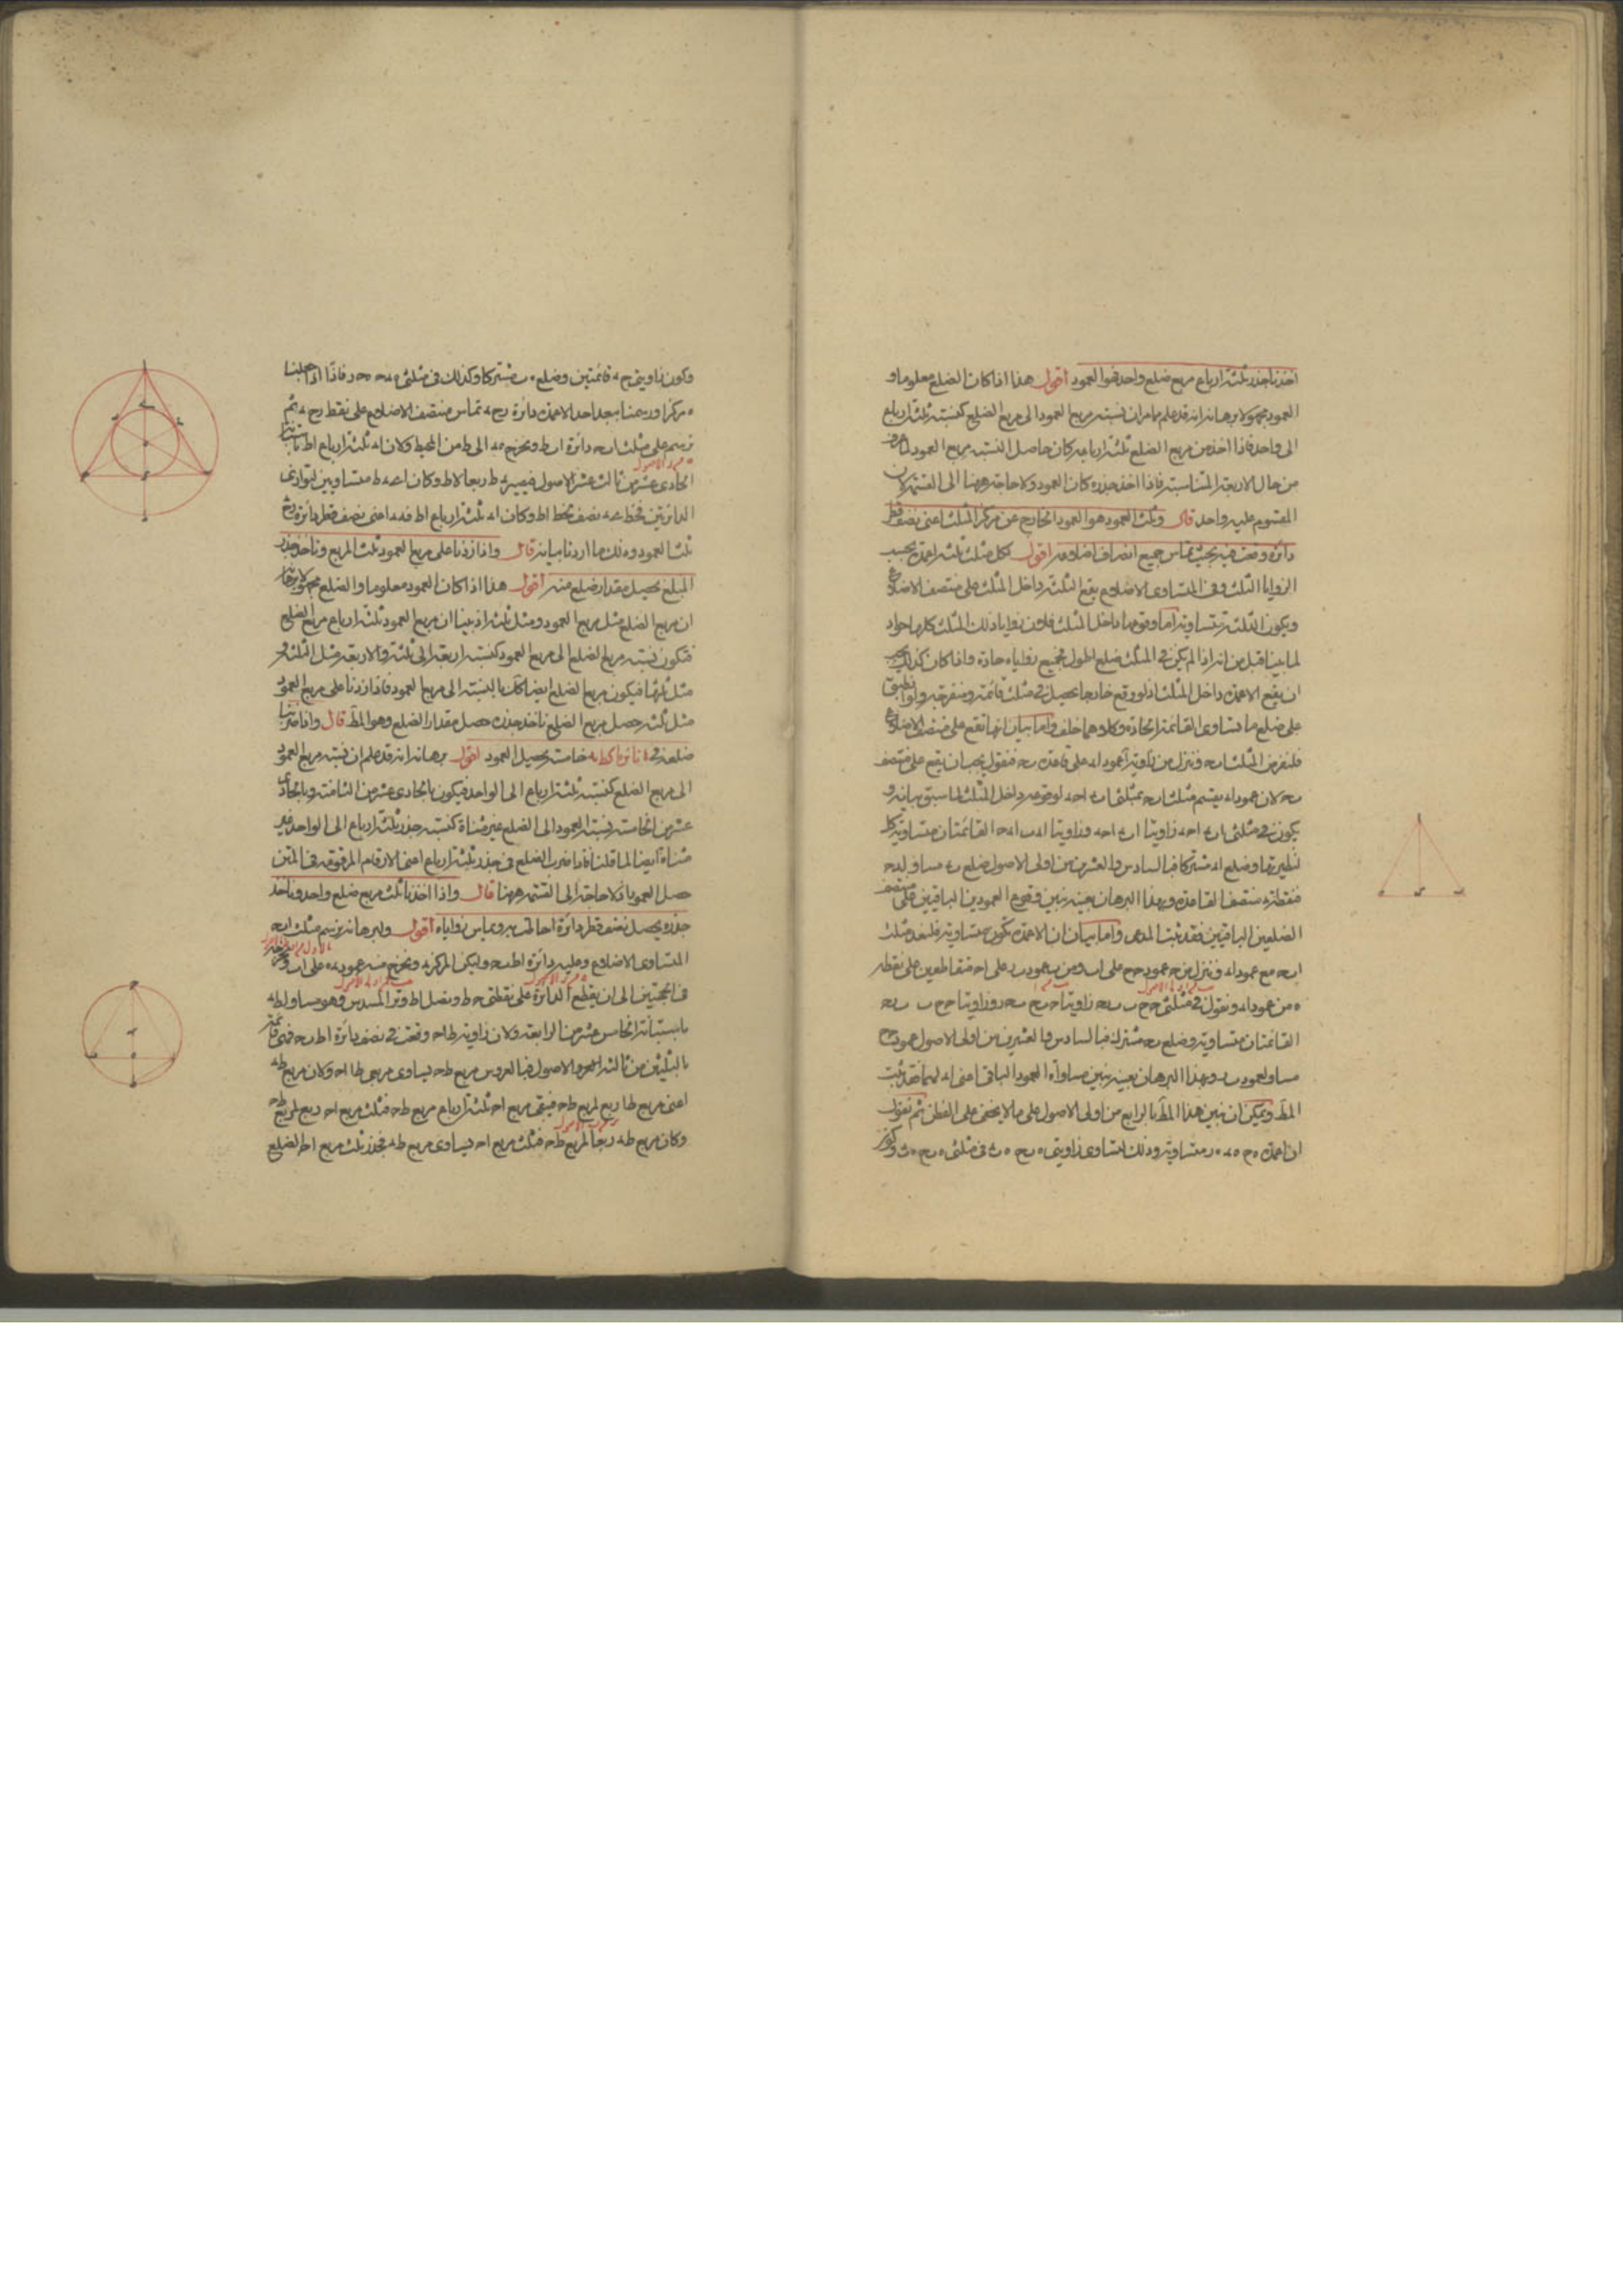 اخذنا جذر ثلثة ارباع مربع ضلع واحد فهو العمود اقول هذا اذا كان الضلع معلوما و
العمود مجهولا برهانه انه قد علم مما مر ان نسبة مربع العمود الى مربع الضلع كنسبة ثلثة ارباع
الى واحد فاذا اخذ من مربع الضلع ثلثة ارباعه كان حاصل النسبة مربع العمود لما مر
من حال الاربعة المتناسبة فاذا اخذ جذره كان العمود ولا حاجة ههنا الى القسمة لان
المقسوم عليه واحد قال وثلث العمود هو العمود الخارج عن مركز المثلث اعنى نصف قطر
دائرة وقعت فيه بحيث تماس جميع اضلاعه اقول لكل مثلث ثلثة اعمدة بحسب
الزوايا الثلث وفى المتساوى الاضلاع يقع الثلثة داخل المثلث على منتصف الاضلاع
ويكون الثلثة متساوية اما وقوعها داخل المثلث فلان زوايا ذلك المثلث كلها حواد
لما بينا قبل من انه اذا لم يكن فى المثلث ضلع اطول فجميع زواياه حادة واذا كان كذلك يجب
ان يقع الاعمدة داخل المثلث اذ لو وقع خارجا يحصل فى مثلث قائمة ومنفرجة ولو انطبق
على ضلع ما تساوى القائمة الحادة وكلاهما خلف واما بيان انها تقع على منتصف الاضلاع
فلنفرض المثلث ا ب ح وننزل من زاوية ا عمود ا د على قاعدة ب ح فنقول يجب ان يقع على منتصف
ب ح لان عمود ا د يقسم مثلث ا ب ح بمثلثى ا ب د ا ح د لوقوعه داخل المثلث لما سبق بيانه و
يكون فى مثلثى ا ب د ا ح د زاويتا ا ب د ا ح د وزاويتا ا د ب ا د ح القائمتان متساوية كل
لنظيرتها وضلع ا د مشتركا فبالسادس والعشرين من اولى الاصول ضلع ب د مساو لـ د ح
فنقطة د منتصف القاعدة وبهذا البرهان بعينه نبين وقوع العمودين الباقيين على منتصف
الضلعين الباقيين فقد ثبت المدعى واما بيان ان الاعمدة تكون متساوية فلنعد مثلث
ا ب ح مع عمود ا د وننزل من ح عمود ح ح على ا ب ومن ب عمود ب ر على ا ح متقاطعين على نقطة
ه من عمود ا د ونقول فى مثلثى ح ح ب ب ر ح زاويتا ح ب ح ر ح ب وزاويتا ح ح ب ب ر ح
القائمتان متساوية وضلع ب ح مشترك فبالسادس والعشرين من اولى الاصول عمود ح ح
مساو لعمود ب ر وبهذا البرهان بعينه نبين مساواة العمود الباقى اعنى ا د لهما فقد ثبت
المط ويمكن ان نبين هذا المط بالرابع من اولى الاصول على ما لا يخفى على الفطن ثم نقول
ان اعمدة ه ح ه د ه ر متساوية وذلك لتساوى زاويتى ه ب ح ه ب د فى مثلثى ه ب ح ه ب د وكون
وكون زاويتى ح د قائمتين وضلع ه ب مشتركا وكذلك فى مثلثى ه د ح ه ح ر فاذا اذا جعلنا
ه مركزا ورسمنا ببعد احد الاعمدة دائرة ر ح د تماس منتصف الاضلاع على نقط ر ح د ثم
نرسم على مثلث ا ب ح دائرة ا ب ط ونخرج ه د الى ط من المحيط ولان ا د ثلثة ارباع ا ط
الحادى عشر من ثالث عشر الاصول فيبقى د ط ربعا لا ط وكان ا ه ه ط متساويين
الدائرتين فخط ه ط نصف لخط ا ط وكان ا د ثلثة ارباع ا ط فه د اعنى نصف قطر دائرة ر د ح
ثلث العمود وذلك ما اردنا بيانه قال واذا زدنا على مربع العمود ثلث المربع وناخذ جذر
المبلغ يحصل مقدار ضلع منه اقول هذا اذا كان العمود معلوما والضلع مجهولا برهانه
ان مربع الضلع مثل مربع العمود ومثل ثلثه اذ بينا ان مربع العمود ثلثة ارباع مربع الضلع
فتكون نسبة مربع الضلع الى مربع العمود كنسبة اربعة الى ثلثة والاربعة مثل الثلثة و
مثل ثلثها فيكون مربع الضلع ايضا كك بالنسبة الى مربع العمود فاذا زدنا على مربع العمود
مثل ثلثه حصل مربع الضلع ناخذ جذره حصل مقدار الضلع وهو المط قال واذا ضربنا
ضلعه فى خامسة يحصل العمود اقول برهانه انه قد علم ان نسبة مربع العمود
الى مربع الضلع كنسبة ثلثة ارباع الى الواحد فيكون بالحادى عشر من الثامنة وبالحادى
عشر من الخامسة نسبة العمود الى الضلع غير مثناة كنسبة جذر ثلثة ارباع الى الواحد غير
مثناة ايضا لما قلنا فاذا ضرب الضلع فى جذر ثلثة ارباع اعنى الارقام المرقومة فى المتن
حصل العمود اذ لا حاجة الى القسمة ههنا قال واذا اخذنا ثلث مربع ضلع واحد وناخذ
جذره يحصل نصف قطر دائرة احاطت به وتماس زواياه اقول وليرهانه نرسم مثلث ا ب ح
المتساوى الاضلاع وعليه دائرة ا ط ب ح وليكن المركز ه ونخرج منه عمود ه على ا ب
فى الجهتين الى ان يقطع الدائرة على نقطتى ح ط ونصل ا ط وتر المسدس وهو مساو لـ ط ه
باستبانة الخامس عشر من الرابعة ولان زاوية ط ا ح وقعت فى نصف دائرة ا ط ب ح فهى قائمة
بالثلثين من ثالثة الاصول فبالعروس مربع ط ح يساوى مربعى ط ا ا ح وكان مربع ط ه
اعنى مربع ط ا ربع لمربع ط ح فيبقى مربع ا ح ثلثة ارباع مربع ط ح فثلث مربع ا ح ربع لمربع ط ح
وكان مربع ط ه ربعا لمربع ط ح فثلث مربع ا ح يساوى مربع ط ه فجذر ثلث مربع ا ح الضلع